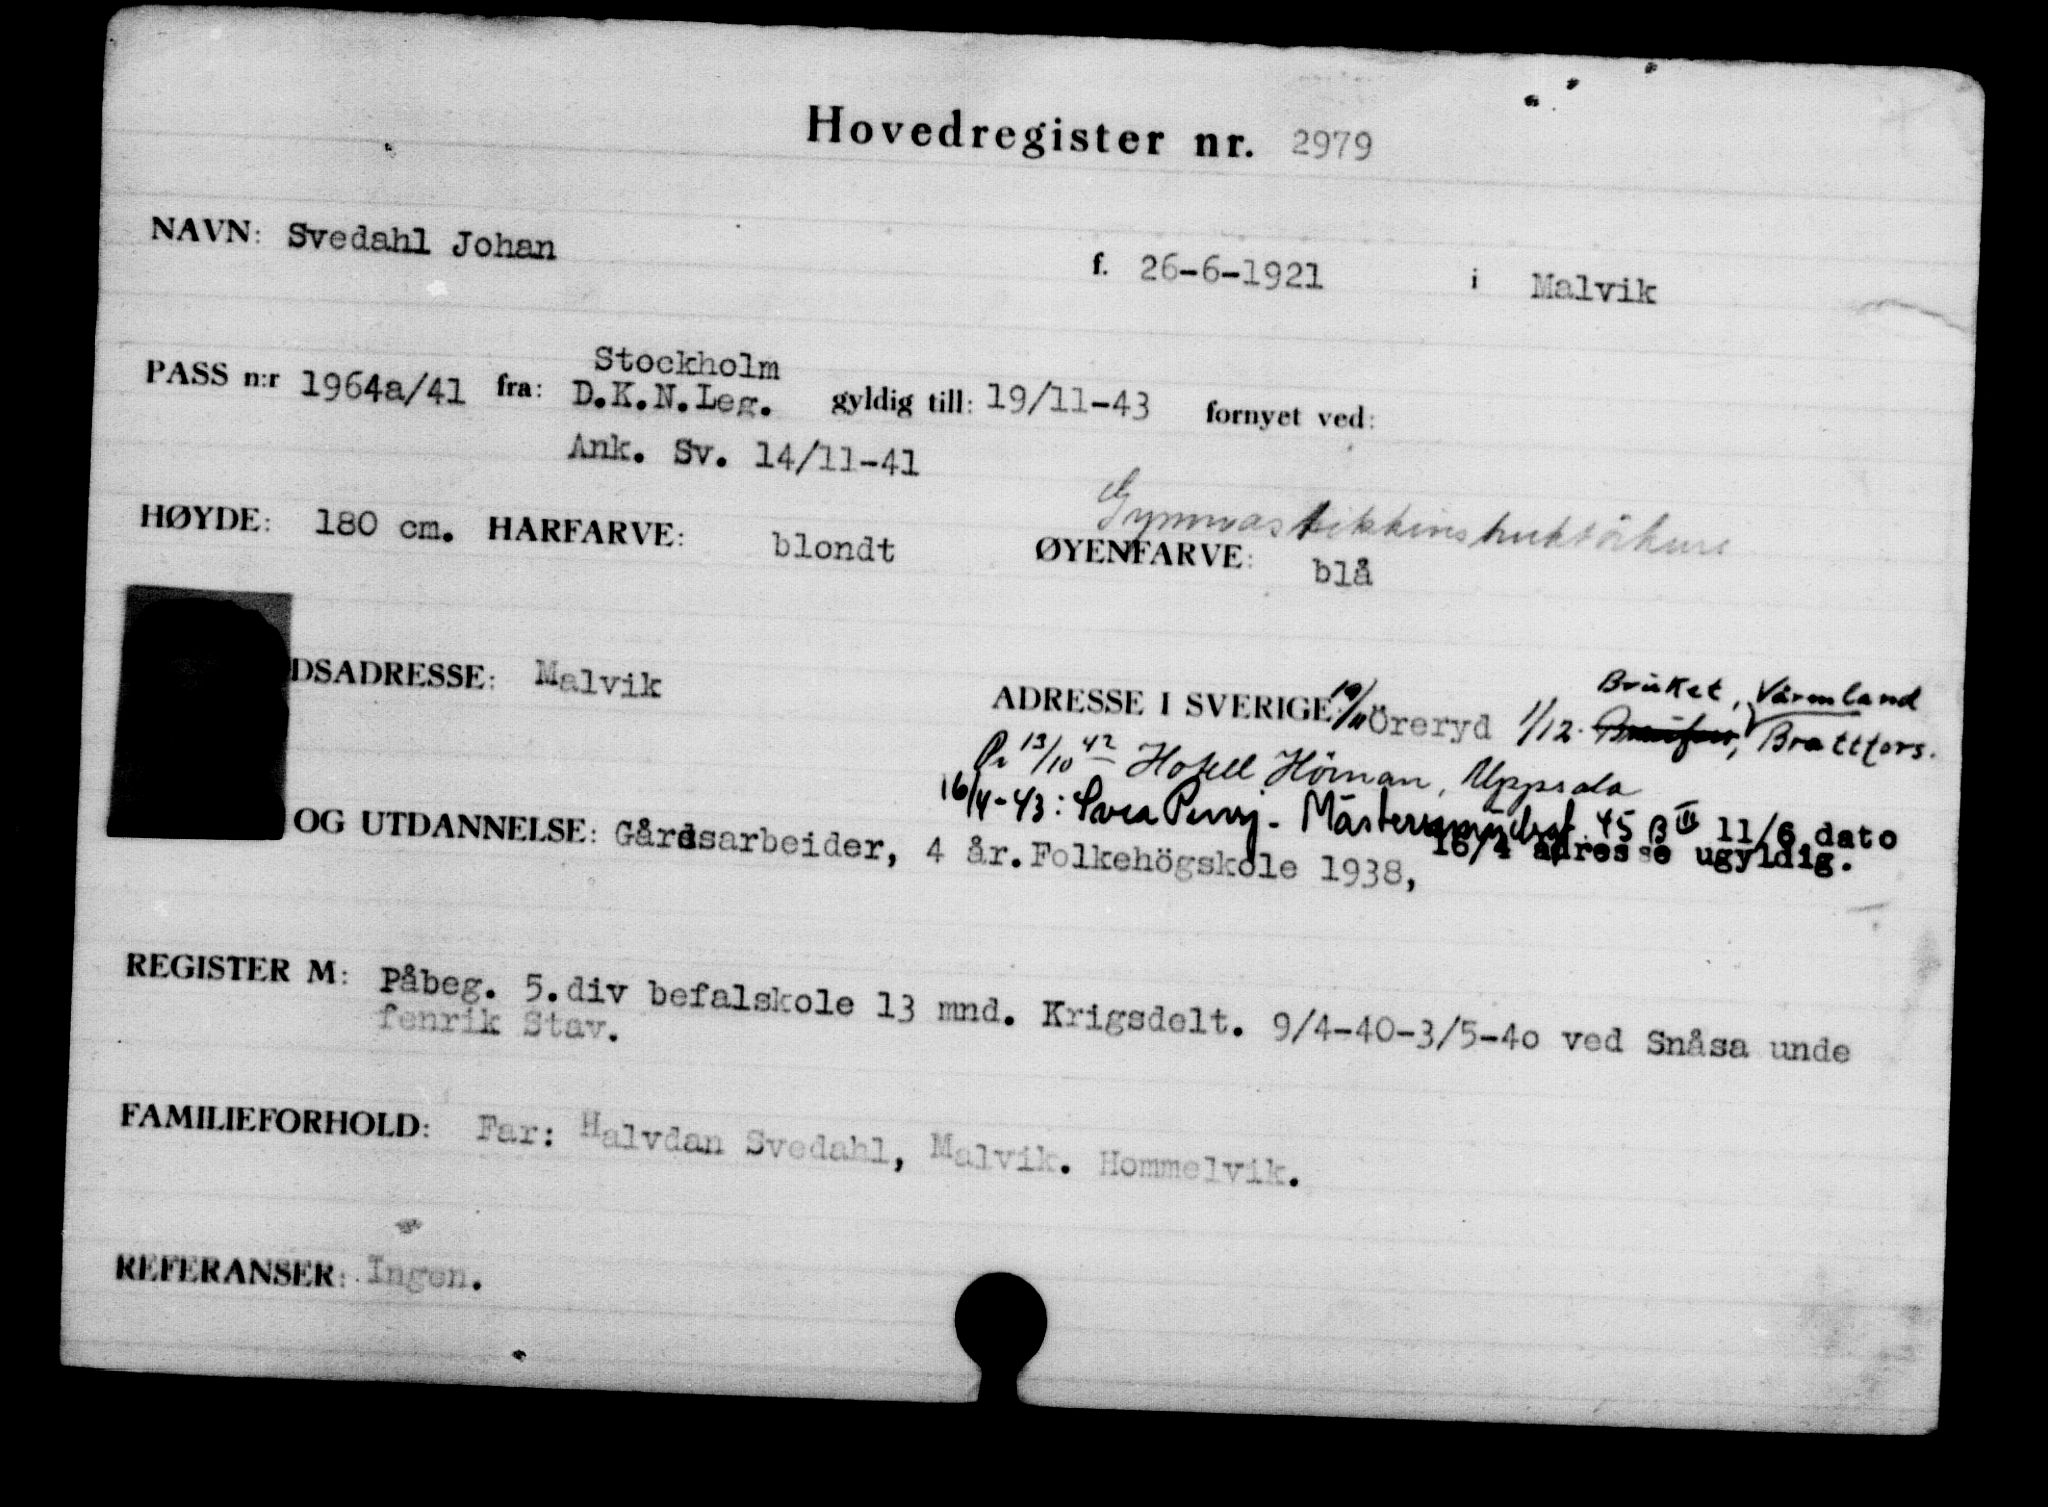 Hovedregister nr. 2979
NAVN: Svedahl Johan f. 26-6-1921 i Malvik
Stockholm
PASS n:r 1964a/41 fra: D.K.N.Leg. gyldig till: 19/11-43 fornyet ved:
Ank. Sv. 14/11-41
Gymnastikkinstruktörkurs
HØYDE: 180 cm. HÅRFARVE: blondt ØYENFARVE: blå
Bruket, Värmland
DSADRESSE: Malvik ADRESSE I SVERIGE: 19/11 Öreryd 1/12. Brattfors.
13/10 42 Hotell Hörnan, Uppsala
16/4-43: Svea Pensj. - Mäster 45 B III 11/6 dato
OG UTDANNELSE: Gårdsarbeider, 4 år. Folkehögskole 1938, 16/4 adresse ugyldig.
REGISTER M: Påbeg. 5.div befalskole 13 mnd. Krigsdelt. 9/4-40-3/5-4o ved Snåsa unde
fenrik Stav.
FAMILIEFORHOLD: Far: Halvdan Svedahl, Malvik. Hommelvik.
REFERANSER: Ingen.